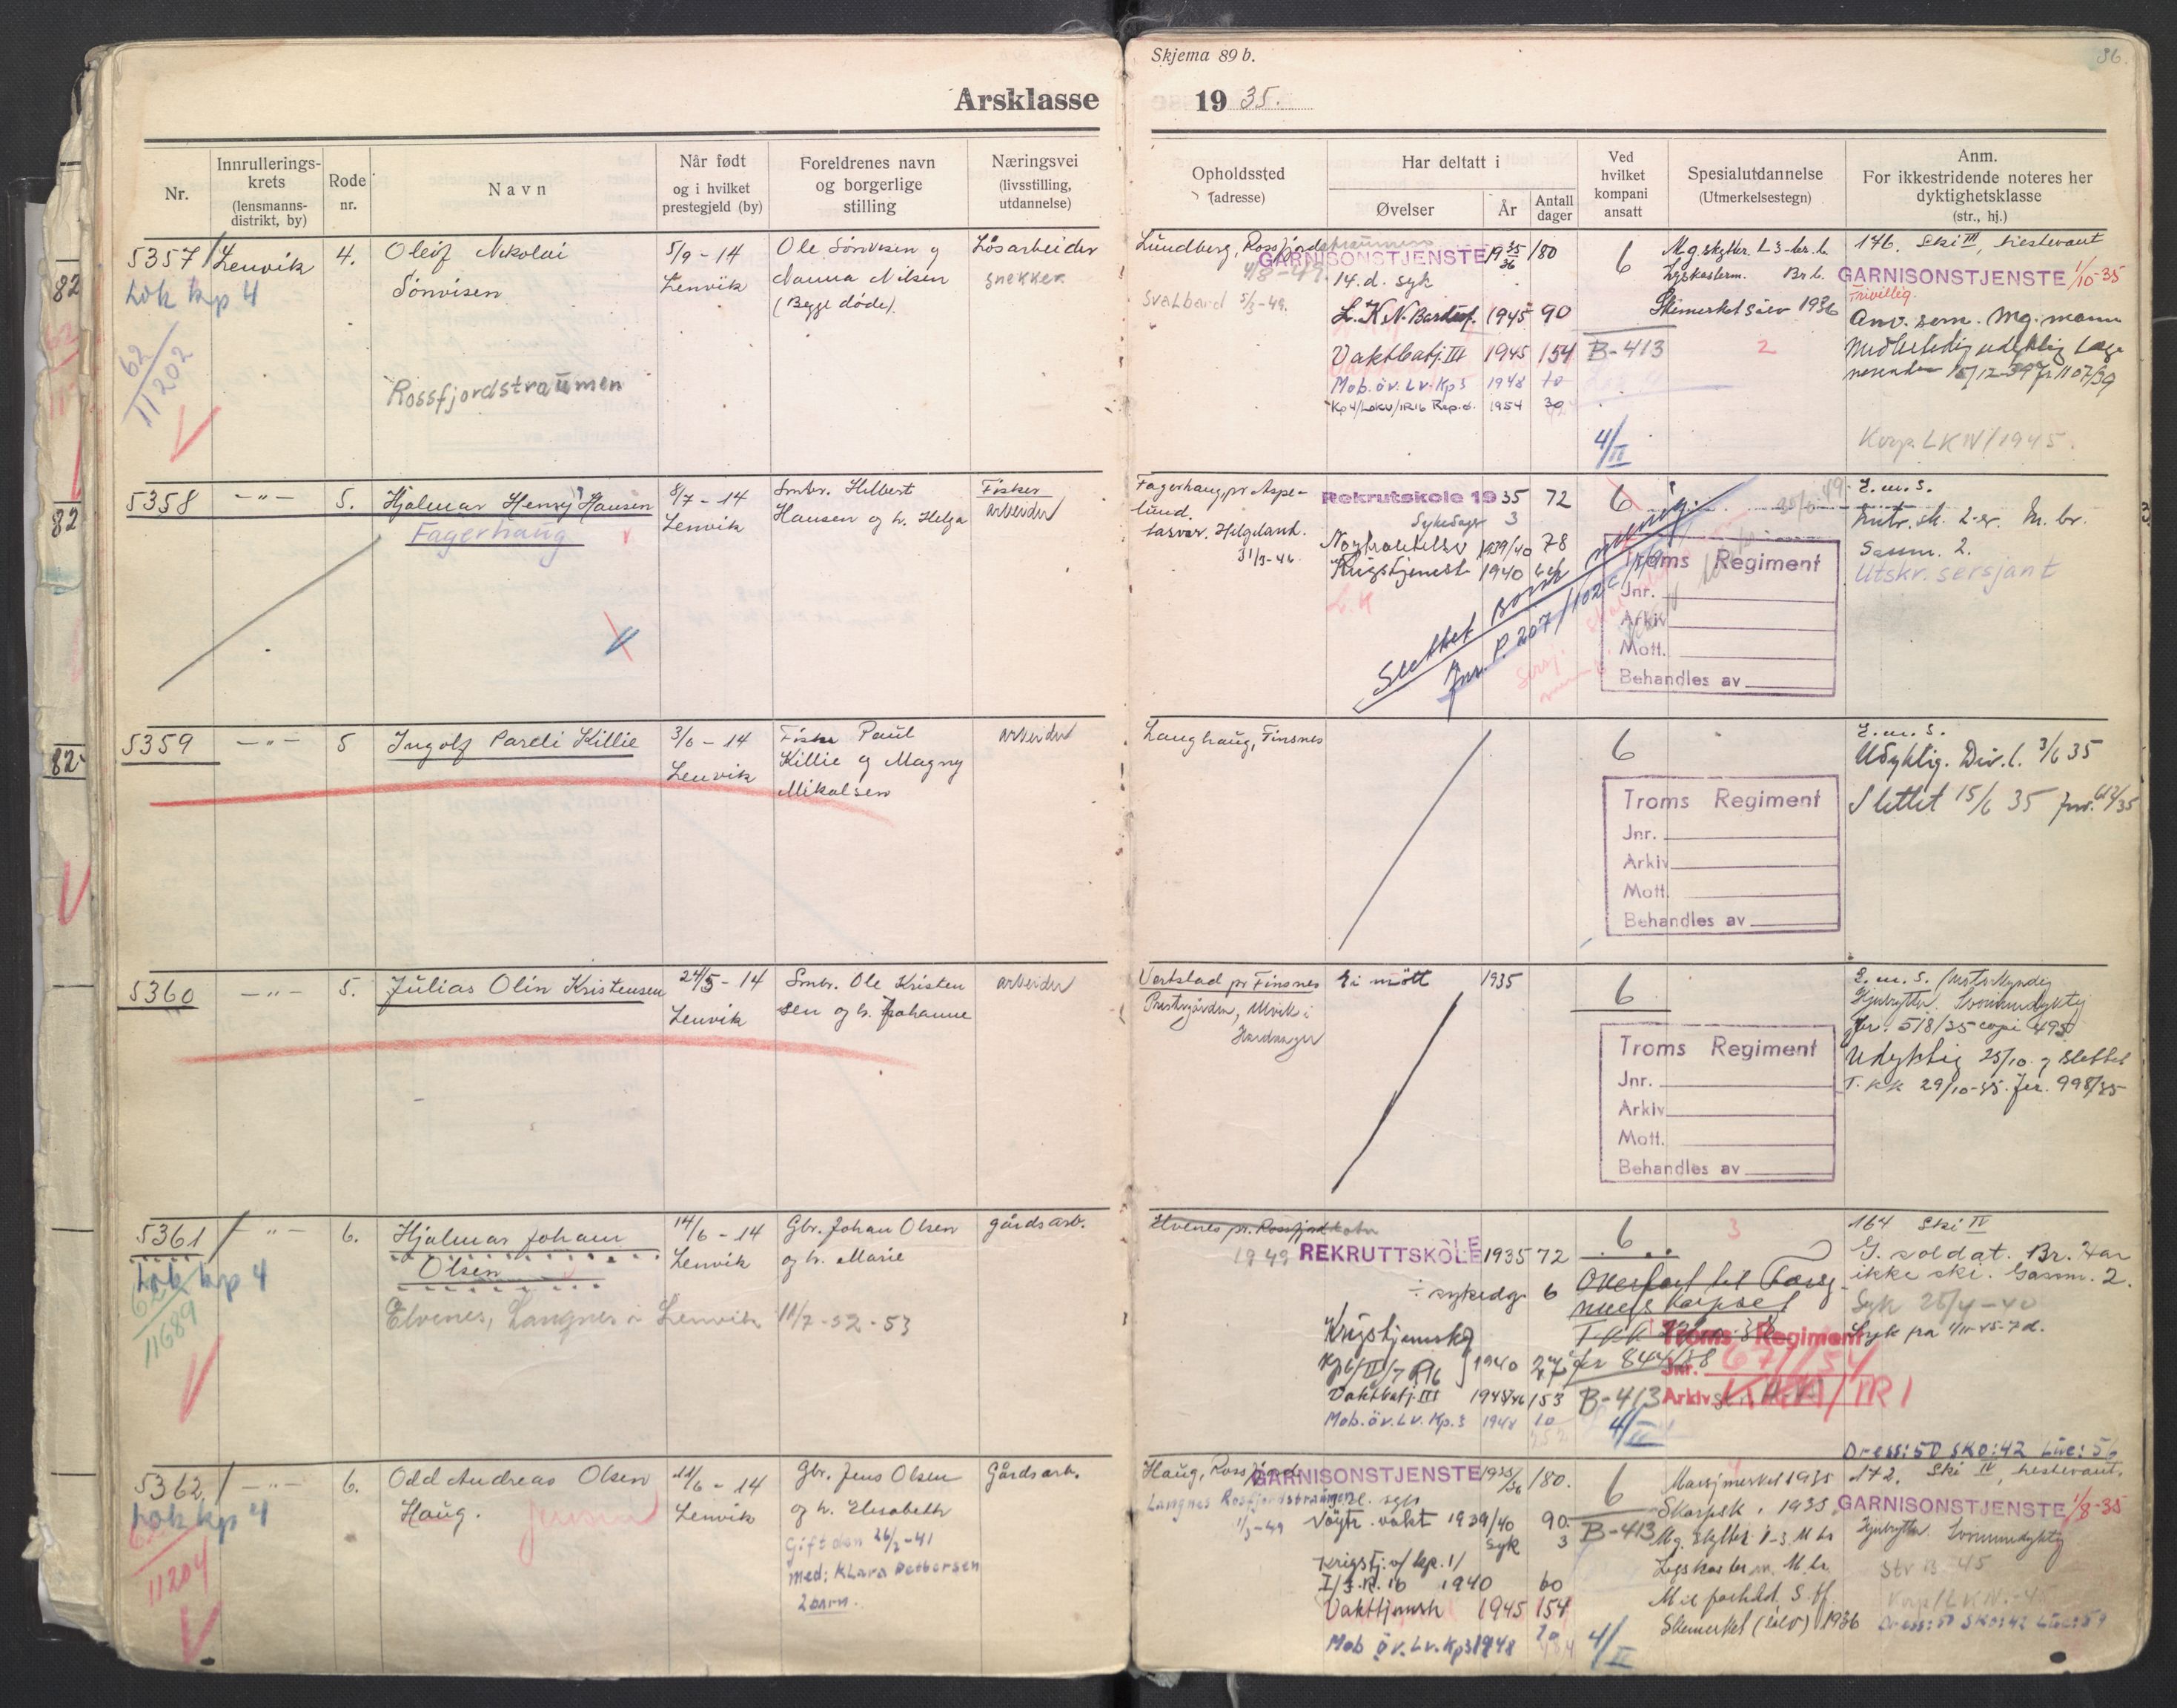 Skjema 89 b.
36.
Årsklasse 19 35.
Nr.
Innrullerings-
krets
(lensmanns-
distrikt, by)
Rode
nr.
Navn
Når født
og i hvilket
prestegjeld (by)
Foreldrenes navn
og borgerlige
stilling
Næringsvei
(livsstilling,
utdannelse)
Opholdssted
(adresse)
Har deltatt i
Øvelser
År
Antall
dager
Ved
hvilket
kompani
ansatt
Spesialutdannelse
(Utmerkelsestegn)
Anm.
For ikkestridende noteres her
dyktighetsklasse
(str., hj.)
82
5357 Lenvik 4.
Lok kp 4
62
11202
Oleif Nikolai
Sönvisen
Rossfjordstraumen
5/9 - 14
Lenvik
Ole Sönvisen g
Nanna Nilsen
(Begge döde).
Lösarbeider
snekker
Lundberg, Rossfjordstraumen
4/8-47.
Svalbard 5/3-49.
GARNISONSTJENSTE 1935/36 180
14. d. syk
L.K.N. Barduf. 1945 90
Vaktbatj. III 1945 154
Mob. öv. Lv. Kp 3 1948 10
Kp4/LokV/IR16 Rep.ö. 1954 30
6
B-413
4/II
Mg. skytter L 3-kr. l.
Lyskasterm. Br. l.
Skimerket sölv 1936
2
176. Ski III, hestevant
GARNISONSTJENSTE 1/10-35
Frivillig.
Anv. som. Mg. mann
Midlertidig udyktig Læge
15/12-39 Jr 1107/39
Korp. LKN/1945.
82
5358 -"- 5.
Hjalmar Henry Hansen
Fagerhaug
8/7 - 14
Lenvik
Smbr. Hilbert
Hansen og h. Helga
Fisker
arbeider
Fagerhaug pr Aspe-
lund.
Tasvær. Helgeland.
31/3-46.
Rekrutskole 1935 72
Sykedager 3
Nøytralitetsv 1939/40 78
Krigstjenest 1940
L.K
6
Slettet
Jnr. P. 207/102
Troms Regiment
Jnr.
Arkiv
Mott.
Behandles av
E.m.S.
Gassm. 2.
Utskr. sersjant
82
5359 -"- 5
Ingolf Pareli Killie
3/6 - 14
Lenvik
Fisker Paul
Killie og Magny
Mikalsen
arbeider
Langhaug, Finsnes
6
Troms Regiment
Jnr.
Arkiv
Mott.
Behandles av
E.m.S.
Udyktig. Div. l. 3/6 35
Slettet 15/6 35 Jnr. 612/35
5360 -"- 5.
Julias Olin Kristensen
24/5 - 14
Lenvik
Smbr. Ole Kristen
sen og h. Johanne
arbeider
Vertstad pr Finsnes
Prestegården, Ulvik i
Hardanger
Ei mött 1935
6
Troms Regiment
Jnr.
Arkiv
Mott.
Behandles av
E.m.S.
Hjulrytter. Svömmedyktig
Jnr. 518/35 copi 495
Udyktig 25/10. g slettet
T.KK 29/10-35. Jnr. 998/35
5361 -"- 6.
Lok kp 4
62
11689
Hjalmar Johan
Olsen
Elvenes, Langnes i Lenvik 11/7-52-53
14/6 - 14
Lenvik
Gbr. Johan Olsen
og h. Marie
gårdsarb.
Elvenes pr. Rossfjordbotn
1949
REKRUTTSKOLE 1935 72
÷ sykedg. 6
Krigstjeneste
Kp 6/II/IR16 1940 27
Vaktbatj. III 1945/46 153
Mob. öv. Lv. Kp. 3 1948 10
6
3
Overfört til Forsy-
nings korpset
Jnr 844/38
B-413
4/II
Troms Regiment
Jnr.
Arkiv
164 Ski IV
G. soldat. Br. Har
ikke ski. Gassm. 2.
Syk 25/4-40
Syk fra 4/11-45-7 d.
Dress: 50 SKO: 42 Lue: 56
5362 -"- 6.
Lok kp 4
62
11204
Odd Andreas Olsen
Haug.
Jensen
11/6 - 14
Lenvik
Gbr. Jens Olsen
og h. Elisabeth
Gift den 26/2-41
med: Klara Petborsen
2 barn.
Gårdsarb.
Haug, Rossfjord
Langnes Rosfjordstraumen
1/3-49
GARNISONSTJENSTE 1935/36 180.
Nöytr. vakt 1939/40 90.
syk 3
Krigstj. v/ kp. 1/
I/I.R. 16 1940 60
Vakttjenest 1945 154
Mob öv. Lv. Kp3 1948 10
6
B-413
4/II
Marsjmerket 1935
Skarpsk. 1935
Mg. skytter
Lyskasterm. M. kr.
Skimerket (sölv) 1936
172. Ski IV, hestevant.
GARNISONSTJENSTE 1/8-35
Hjulrytter. Svömmedyktig
Dress: 50 SKO: 42 Lue: 57